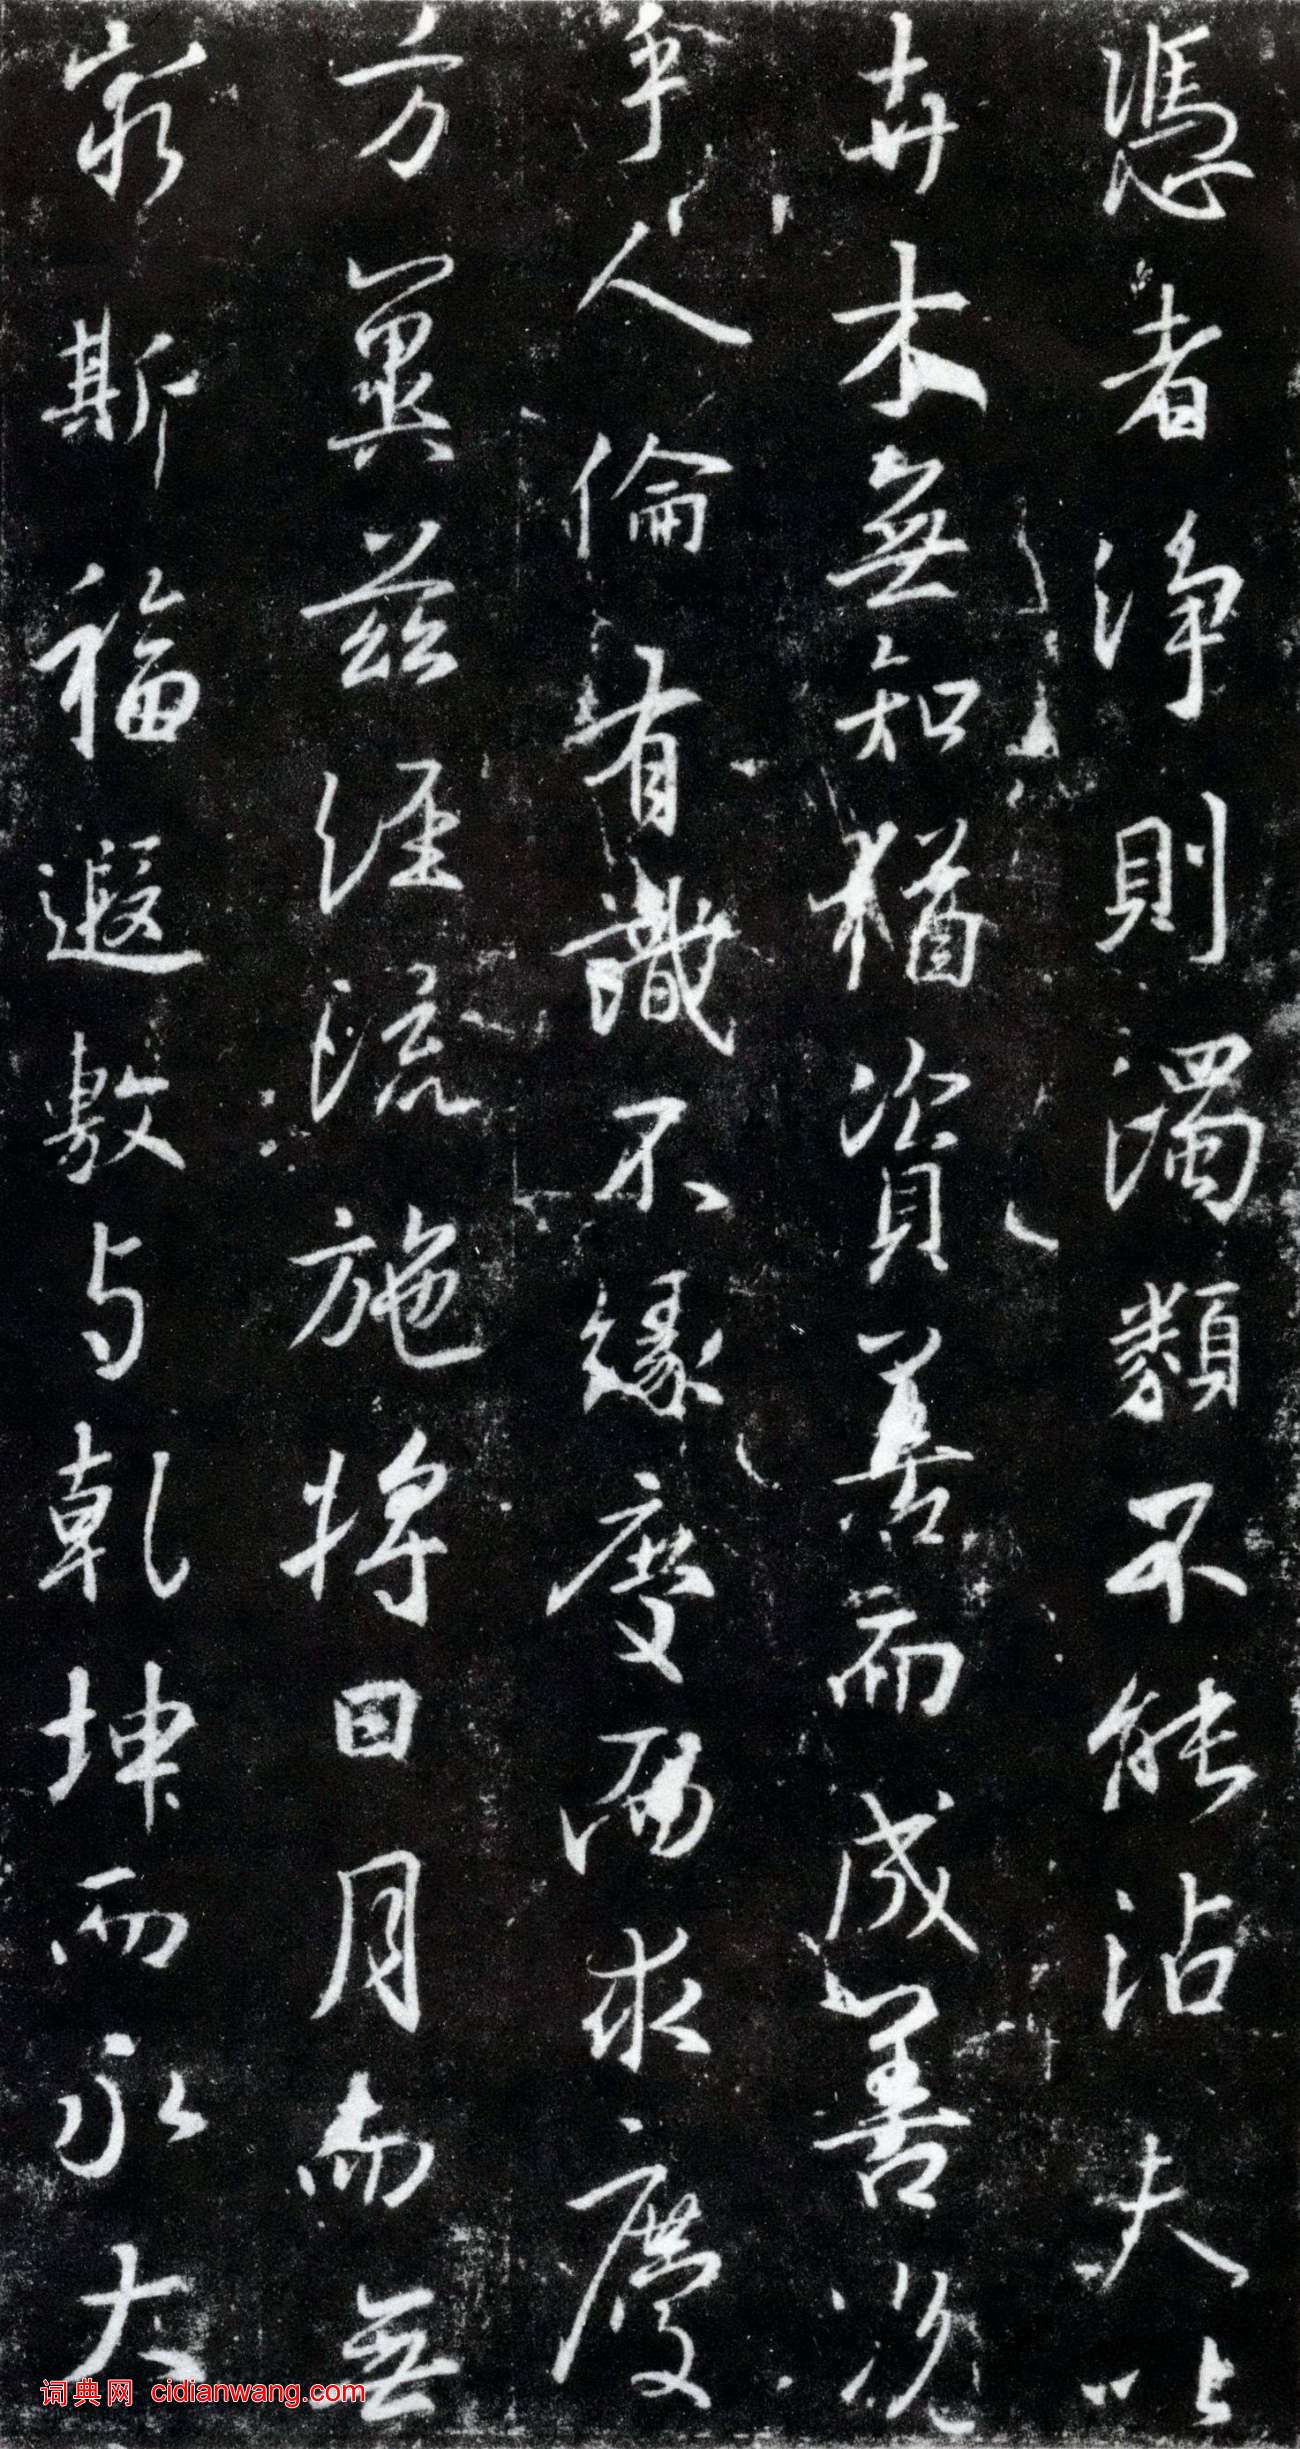 憑者淨則濁類不能沾夫以
卉木無知猶資善而成善況
乎人倫有識不緣慶而求慶
方冀茲經流施將日月而無
窮斯福遐敷与乾坤而永大
词典网 cidianwang.com